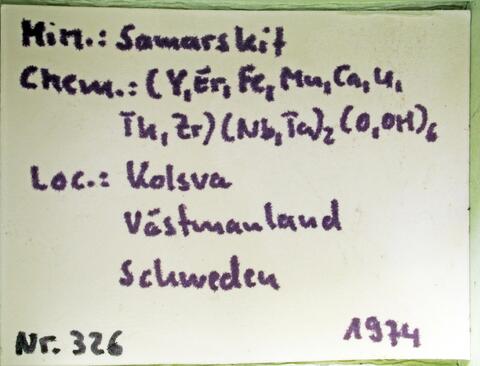 Min.: Samarskit
Chem.: (Y, Er, Fe, Mn, Ca, U,
Th, Zr) (Nb, Ta)₂ (O, OH)₆
Loc.: Kolsva
Västmanland
Schweden
Nr. 326
1974